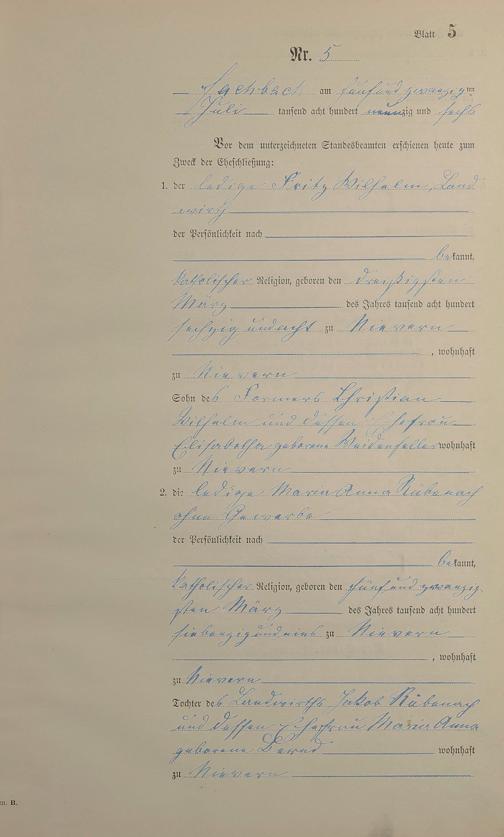 Blatt 5
Nr. 5
Fachbach am fünfundzwanzigten
Juli tausend acht hundert neunzig und sechs
Vor dem unterzeichneten Standesbeamten erschienen heute zum
Zweck der Eheschließung:
1. der ledige Fritz Wilhelm, Land
wirth
der Persönlichkeit nach
bekannt,
katholischer Religion, geboren den dreißigsten
März des Jahres tausend acht hundert
sechzig und acht zu Nievern
, wohnhaft
zu Nievern
Sohn des Formers Christian
Wilhelm und dessen Ehefrau
Elisabetha geborene wohnhaft
zu Nievern
2. die ledige Maria Anna Rübenach
ohne Gewerbe
der Persönlichkeit nach
bekannt,
katholischer Religion, geboren den fünfundzwanzig
sten März des Jahres tausend acht hundert
siebenzig und eins zu Nievern
, wohnhaft
zu Nievern
Tochter des Landwirths Jakob Rübenach
und dessen Ehefrau Maria Anna
geborene wohnhaft
zu Nievern
B.